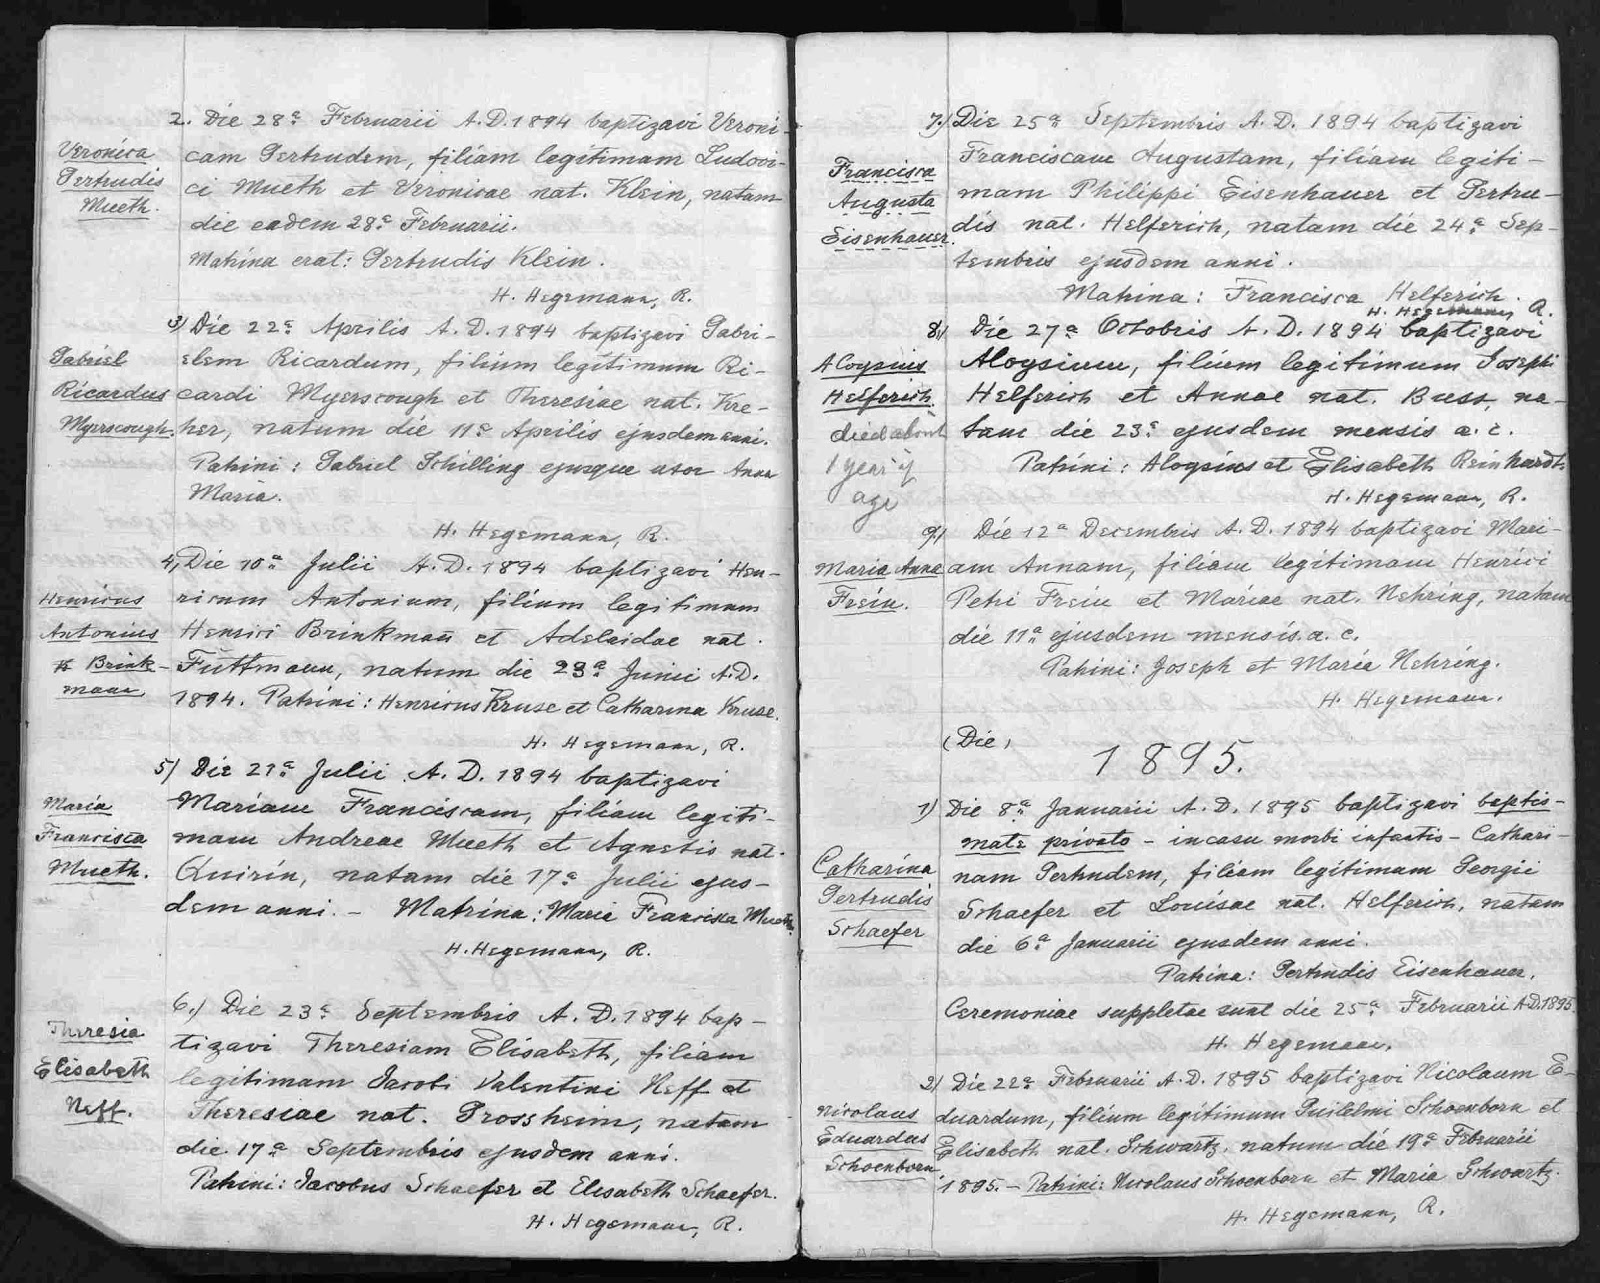 2. Die 28ª Februarii A.D. 1894 baptizavi Veroni-
Veronica
cam Gertrudem, filiam legitimam Ludovi-
Gertrudis
ci Mueth et Veronicae nat. Klein, natam
Mueth.
die eadem 28ª Februarii.
Matrina erat: Gertrudis Klein.
H. Hegemann, R.
3) Die 22ª Aprilis A.D. 1894 baptizavi Gabri-
Gabriel
elem Ricardum, filium legitimum Ri-
Ricardus
cardi Myerscough et Theresiae nat. Kre-
Myerscough.
her, natum die 11ª Aprilis ejusdem anni.
Patrini: Gabriel Schilling ejusque uxor Anna
Maria.
H. Hegemann, R.
4, Die 10ª Julii A.D. 1894 baptizavi Hen-
Henricus
ricum Antonium, filium legitimum
Antonius
Henrici Brinkmann et Adelaidae nat.
Brink-
Futtmann, natum die 23ª Junii A.D.
mann
1894. Patrini: Henricus Kruse et Catharina Kruse.
H. Hegemann, R.
5) Die 21ª Julii A.D. 1894 baptizavi
Maria
Mariam Franciscam, filiam legiti-
Francisca
mam Andreae Mueth et Agnetis nat.
Mueth.
Quirin, natam die 17ª Julii ejus-
dem anni. - Matrina: Maria Franciska Mueth.
H. Hegemann, R.
6.) Die 23ª Septembris A.D. 1894 bap-
Theresia
tizavi Theresiam Elisabeth, filiam
Elisabeth
legitimam Jacobi Valentini Neff et
Neff.
Theresiae nat. Grossheim, natam
die 17ª Septembris ejusdem anni.
Patrini: Jacobus Schaefer et Elisabeth Schaefer.
H. Hegemann, R.
7.) Die 25ª Septembris A.D. 1894 baptizavi
Francisca
Franciscam Augustam, filiam legiti-
Augusta
mam Philippi Eisenhauer et Gertru-
Eisenhauer.
dis nat. Helferich, natam die 24ª Sep-
tembris ejusdem anni.
Matrina: Francisca Helferich.
H. Hegemann, R.
8.) Die 27ª Octobris A.D. 1894 baptizavi
Aloysius
Aloysium, filium legitimum Josephi
Helferich.
Helferich et Annae nat. Buss, na-
died about
tum die 23ª ejusdem mensis a. c.
1 year of
Patrini: Aloysius et Elisabeth Reinhardt.
age
H. Hegemann, R.
9.) Die 12ª Decembris A.D. 1894 baptizavi Mari-
Maria Anna
am Annam, filiam legitimam Henrici
Frein.
Petri Frein et Mariae nat. Nehring, natam
die 11ª ejusdem mensis. a. c.
Patrini: Joseph et Maria Nehring.
H. Hegemann.
(Die)
1895.
1) Die 8ª Januarii A.D. 1895 baptizavi baptis-
mate privato - in casu morbi infantis - Cathari-
Catharina
nam Gertrudem, filiam legitimam Georgii
Gertrudis
Schaefer et Louisae nat. Helferich, natam
Schaefer
die 6ª Januarii ejusdem anni.
Patrina: Gertrudis Eisenhauer.
Ceremoniae suppletae sunt die 25ª Februarii A.D. 1895.
H. Hegemann.
2) Die 22ª Februarii A.D. 1895 baptizavi Nicolaum E-
Nicolaus
duardum, filium legitimum Guilelmi Schoenborn et
Eduardus
Elisabeth nat. Schwartz, natum die 19ª Februarii
Schoenborn.
1895. - Patrini: Nicolaus Schoenborn et Maria Schwartz.
H. Hegemann, R.